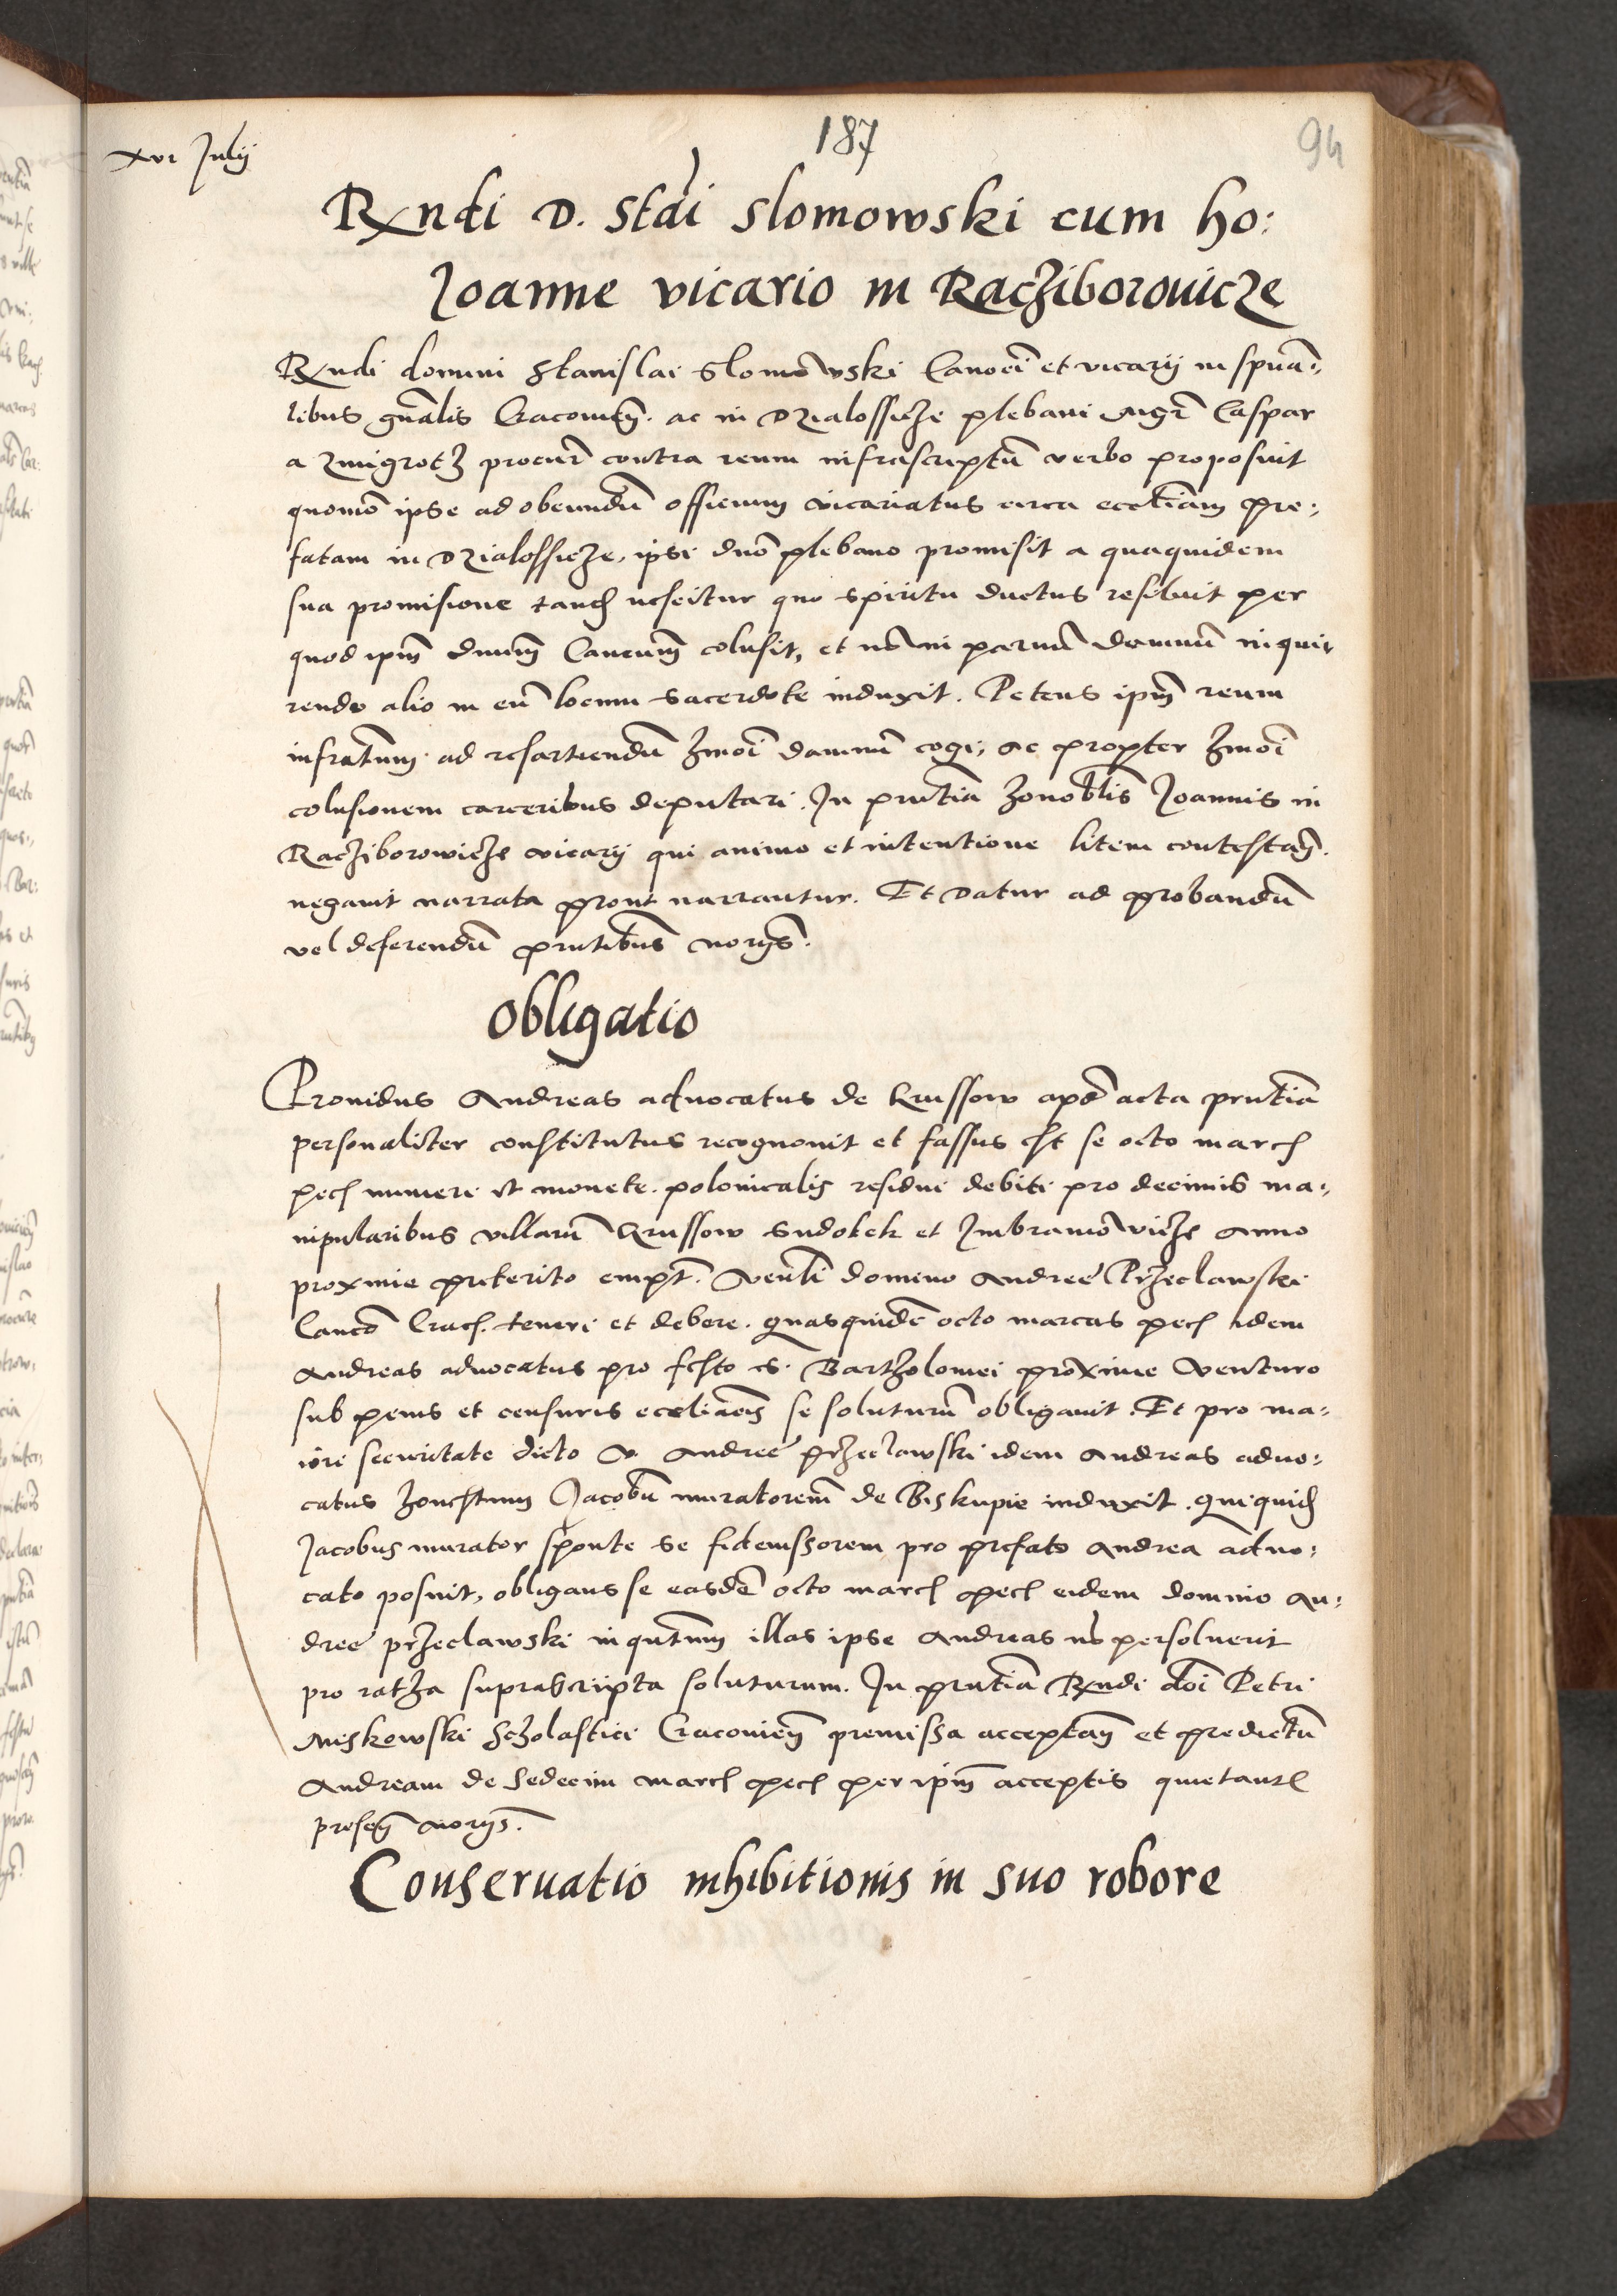 xvi Julij
187
94
Rxndi D. Stai Slomowski cum ho:
Joanne vicario in Racziborouicze
Rxndi domini Stanislai Slomowski Canoci et vicarij in spũa-
libus gnãlis Cracovien̄. ac in Dzialossicze plebani Mgr̃ Caspar
a Zmigrotz procur̃ contra reum infrascriptũ verbo proposuit
quomõ ipse ad obeundũ officium vicariatus circa eccliam pre-
fatam in Dzialossicze, ipsi dnõ plebano promisit a quaquidem
sua promisione tandẽ nescitur quo spiritu ductus resiluit per
quod ipm̃ dnum̃ Canonm̃ colusit, et nõ in parvũ damnũ inqui-
rendo alio in eũ locum sacerdote induxit. Petens ipm̃ reum
infratum̃ ad resartiendũ hmõi damnũ cogi, ac propter hmõi
colusionem carceribus deputari. In pñtia honoblis Joannis in
Racziborowicze vicarij qui animo et intentione litem contestan̄.
negavit narrata prout narrantur. Et datur ad probandũ
vel deferendũ pñtibus norijs.
Obligatio
Providus Andreas advocatus de Krussow apd̃ acta pñtia
personaliter constitutus recognovit et fassus est se octo march
pecũ numeri et monete polonicalis residui debiti pro decimis ma-
nipularibus villarũ Krussow Sudolek et Imbramowicze anno
proxime preterito empt̃. Venl̃i domino Andree Przeclawski
Canco Crac. teneri et debere. quasquidẽ octo marcas pecũ idem
Andreas advocatus pro festo s. Bartholomei proxime venturo
sub penis et censuris eccliacis se soluturũ obligavit. Et pro ma-
iori securitate dicto v. Andree przeclawski idem Andreas advo-
catus honestum Jacobũ muratorem̃ de Biskupie induxit. quiquidẽ
Jacobus murator sponte se fideiussorem pro prefato Andrea advo-
cato posuit, obligans se easdẽ octo march pecũ eidem domino An-
dree przeclawski inqutm̃ illas ipse Andreas nõ persolverit
pro ratha suprascripta soluturum. In pñtia Rxndi dõi Petri
Miskowski Scholastici Cracovien̄ premissa acceptan̄ et predictũ
Andream de sedecim march pecũ per ipm̃ acceptis quietant
presen̄ norijs.
Conservatio inhibitionis in suo robore